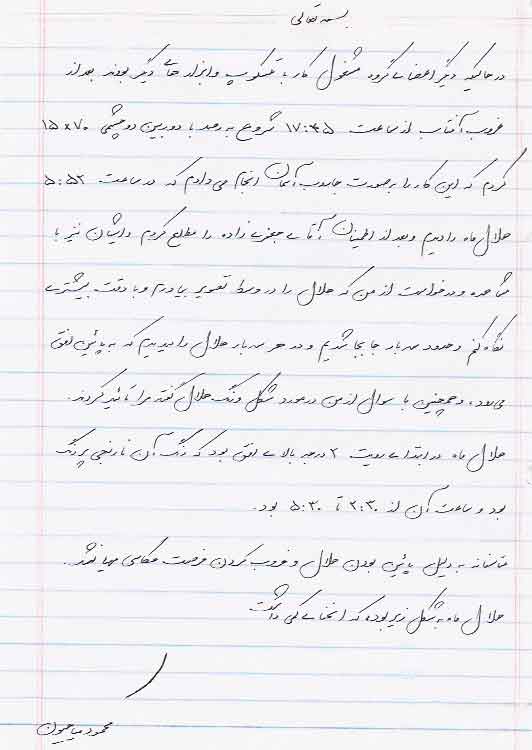 بسمه تعالی
در حالیکه دیگر اعضای گروه مشغول کار با تلسکوپ و ابزار های دیگر بودند بعد از
غروب آفتاب از ساعت ۱۷:۴۵ شروع به رصد با دوربین دوچشمی ۷۰×۱۵
کردم که این کار را بصورت جاروب آسمان انجام می دادم که در ساعت ۵:۵۲
هلال ماه را دیدم و بعد از اطمینان آقای جعفری زاده را مطلع کردم و ایشان نیز با
مشاهده و درخواست از من که هلال را در وسط تصویر بیاورم و با دقت بیشتری
نگاه کنم و حدود سه بار جابجا شدیم و در هر سه بار هلال را دیدیم که به پائین افق
می رود، و همچنین با سوال از من در مورد شکل و رنگ هلال گفته مرا تائید کردند.
هلال ماه در ابتدای رویت ۲ درجه بالای افق بود که رنگ آن نارنجی پر رنگ
بود و ساعت آن از ۳:۳۰ تا ۵:۳۰ بود.
متاسفانه به دلیل پائین بودن هلال و غروب کردن فرصت عکاسی مهیا نشد.
هلال ماه به شکل زیر بوده که انحنای کمی داشت
محمود